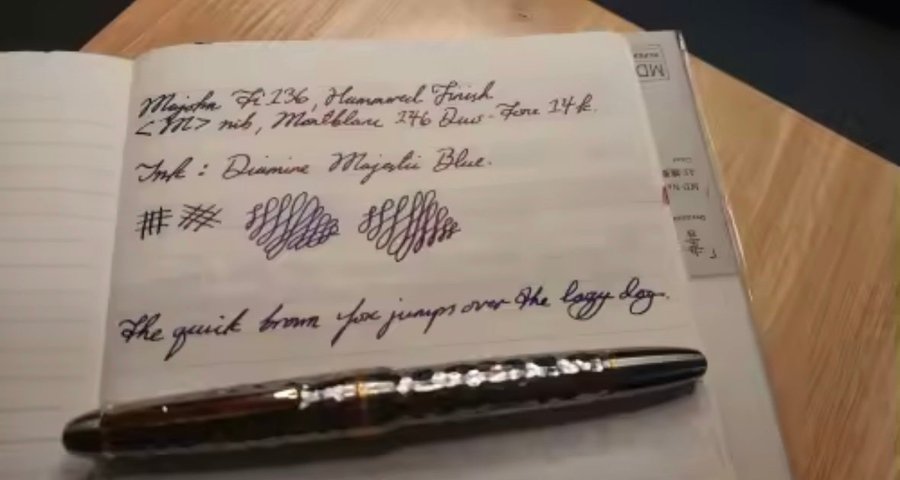 Majohn Ti 136, Hammered Finish
<M> nib, Montblanc 146 Duo-Tone 14k.
Ink : Diamine Majestic Blue.
The quick brown fox jumps over the lazy dog.
MD